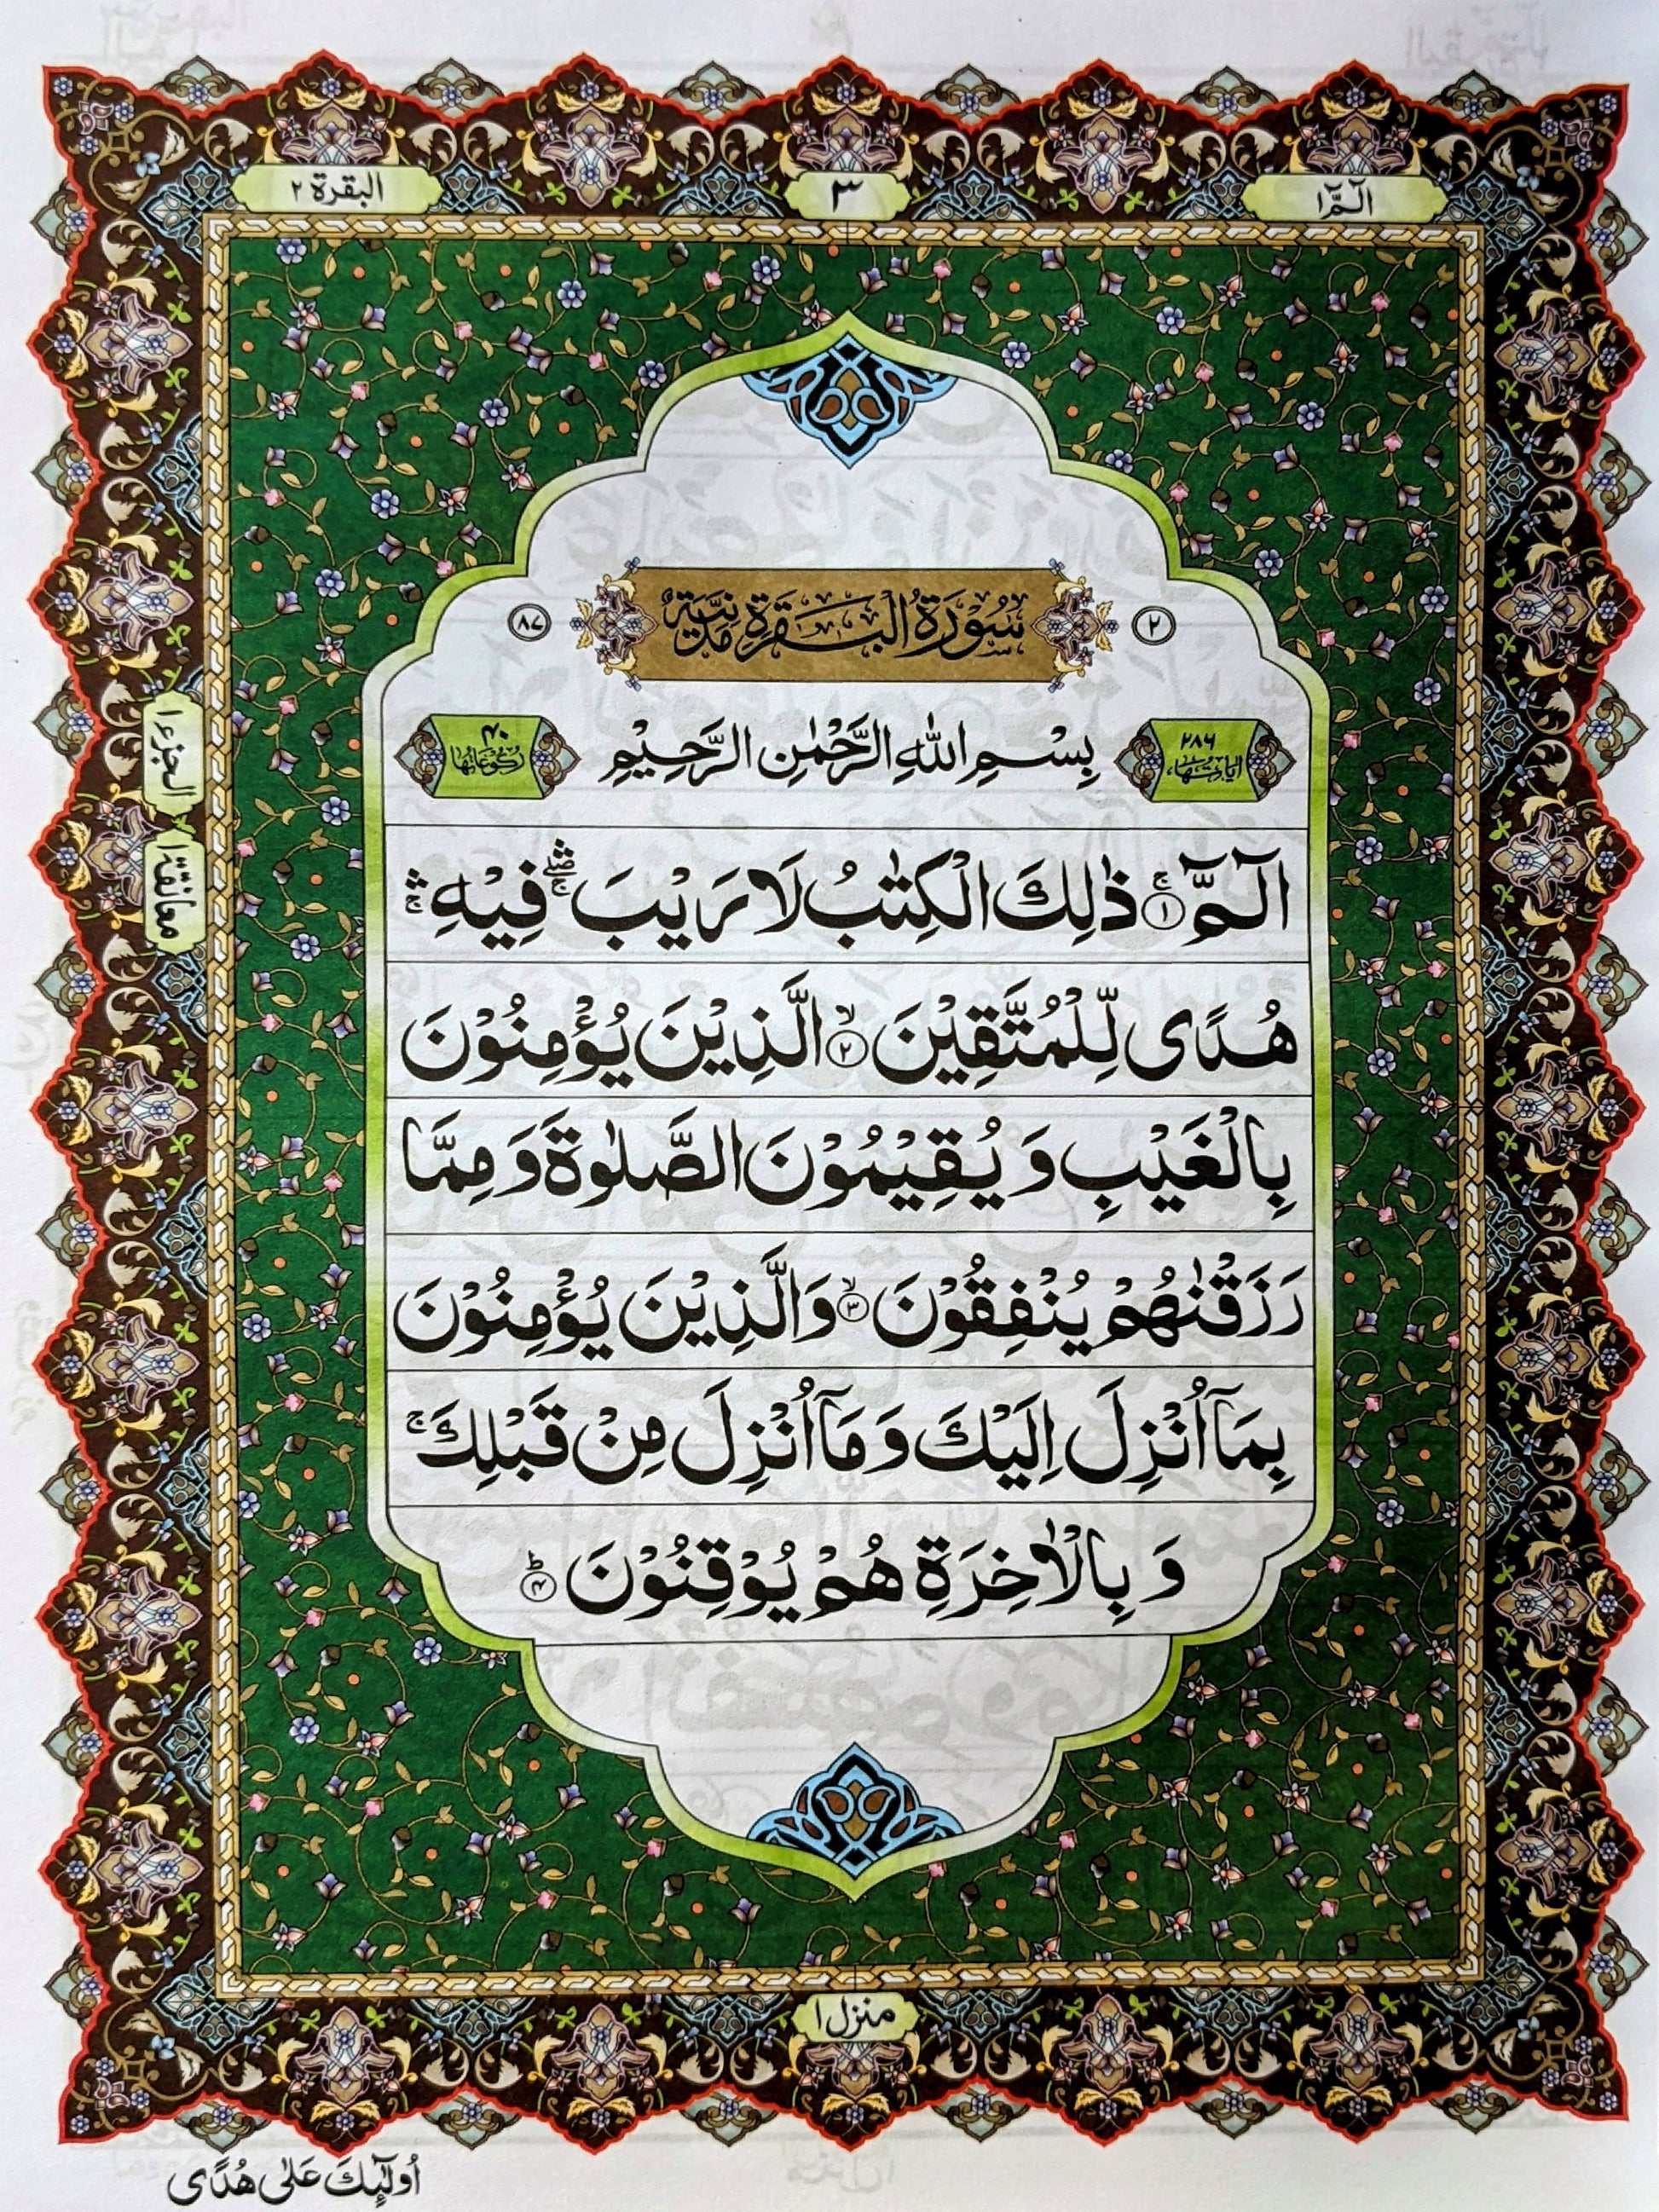 الٓمّٓ ١
٣
البقرة ٢
٢
سُوْرَةُ الْبَقَرَةِ مَدَنِيَّةٌ
٨٧
اٰيَاتُهَا ٢٨٦
بِسْمِ اللّٰهِ الرَّحْمٰنِ الرَّحِيْمِ
رُكُوْعَاتُهَا ٤٠
الٓمّٓ ۚ﴿۱﴾ ذٰلِكَ الْكِتٰبُ لَا رَيْبَ ۛۖۚ فِيْهِ ۛۚ
هُدًى لِّلْمُتَّقِيْنَ ۙ﴿۲﴾ الَّذِيْنَ يُؤْمِنُوْنَ
بِالْغَيْبِ وَ يُقِيْمُوْنَ الصَّلٰوةَ وَ مِمَّا
رَزَقْنٰهُمْ يُنْفِقُوْنَ ۙ﴿۳﴾ وَالَّذِيْنَ يُؤْمِنُوْنَ
بِمَآ اُنْزِلَ اِلَيْكَ وَ مَآ اُنْزِلَ مِنْ قَبْلِكَ ۚ
وَ بِالْاٰخِرَةِ هُمْ يُوْقِنُوْنَ ؕ﴿۴﴾
الجزء ١
معانقة ١
منزل ١
اُولٰٓئِكَ عَلٰى هُدًى